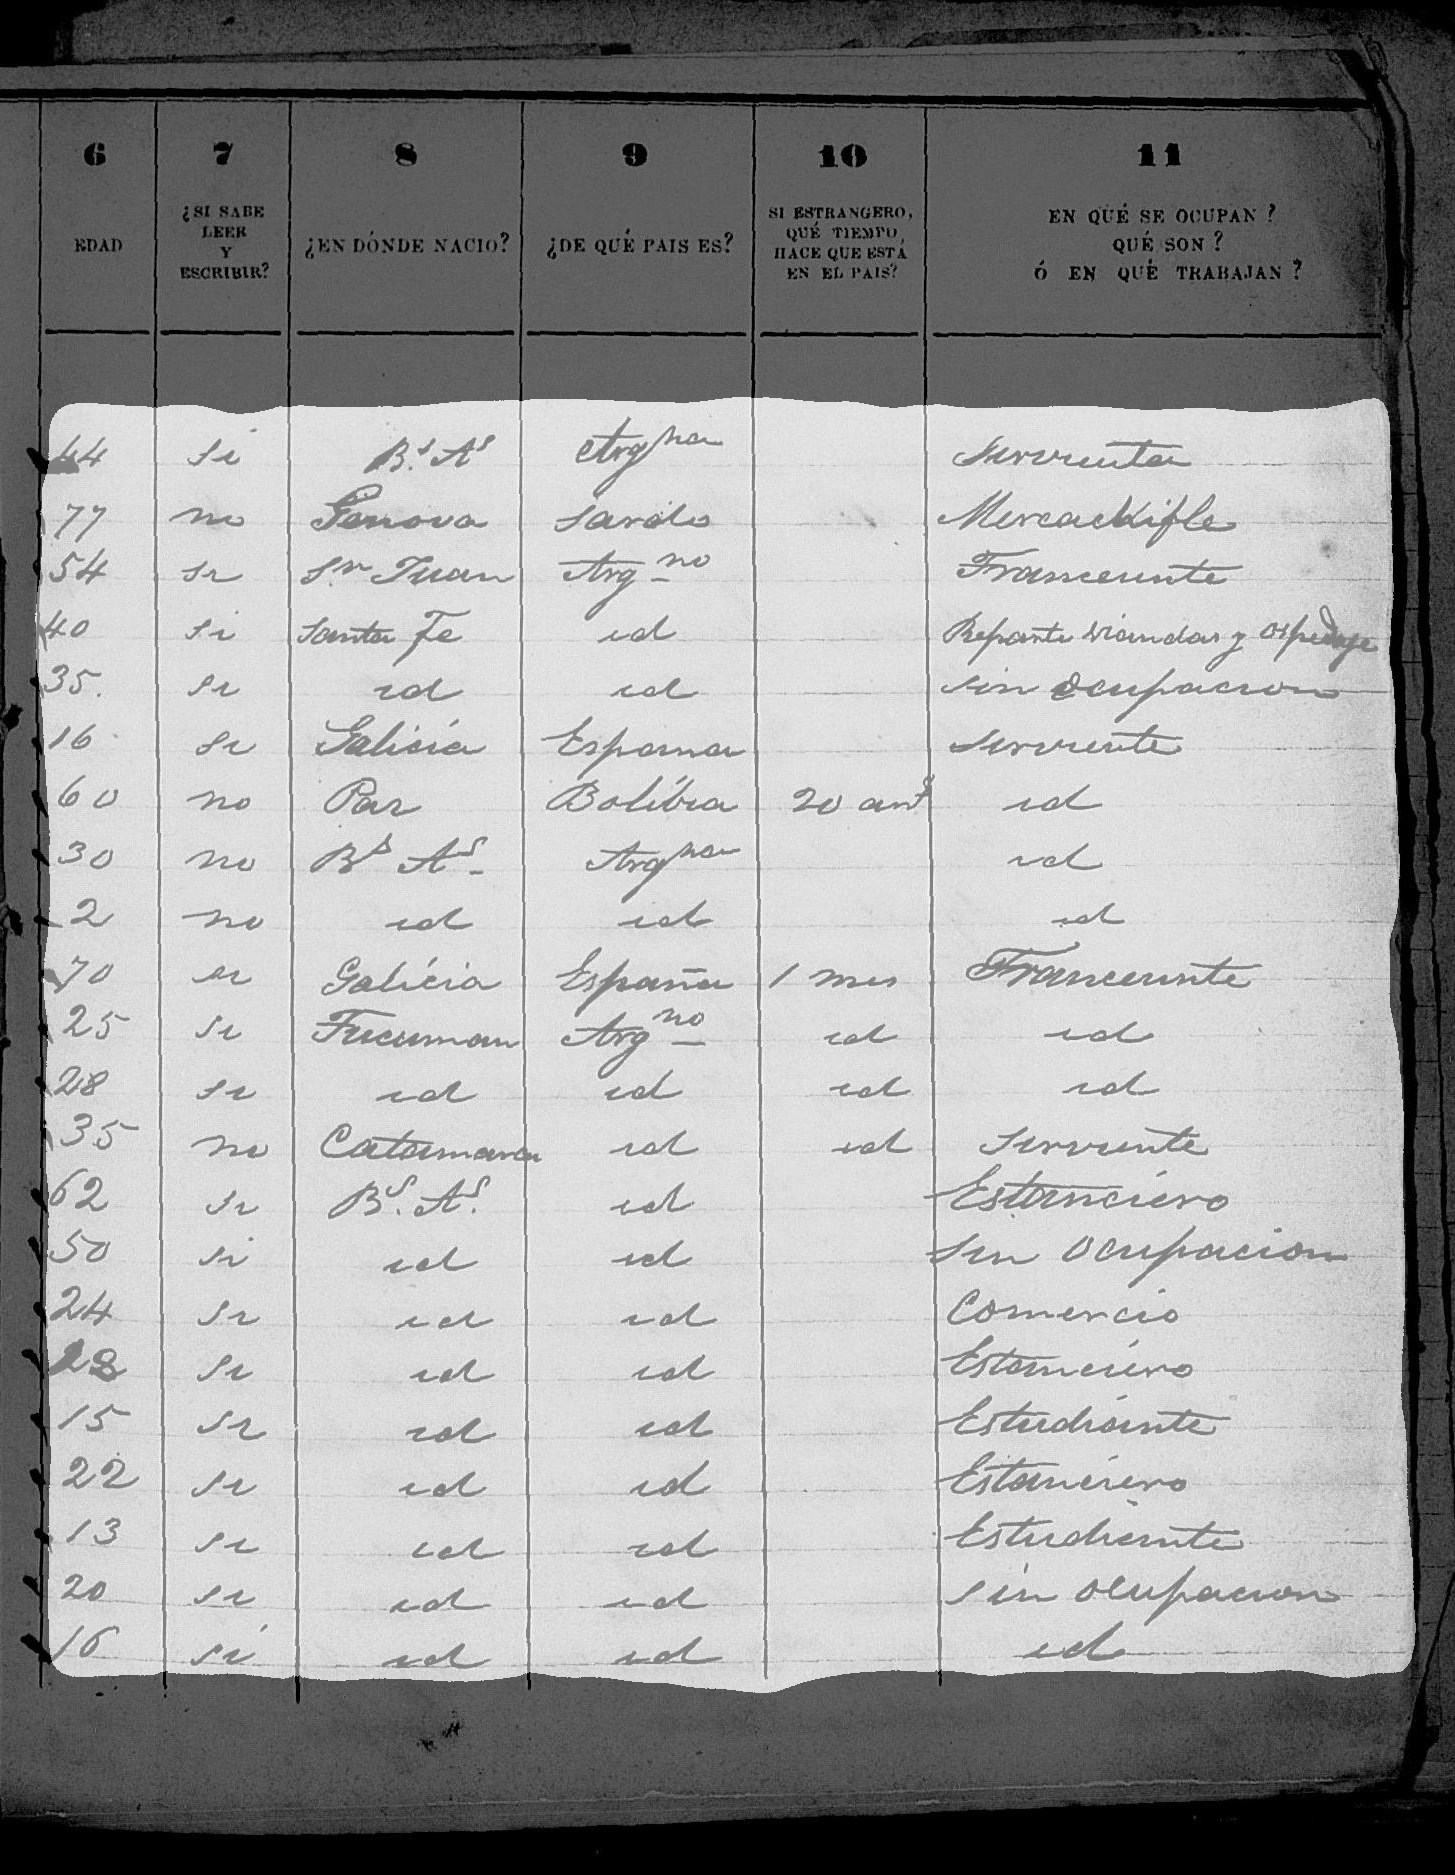 6 7 8 9 10 11
EDAD ¿SI SABE LEER Y ESCRIBIR? ¿EN DÓNDE NACIO? ¿DE QUÉ PAIS ES? SI ESTRANGERO, QUÉ TIEMPO HACE QUE ESTÁ EN EL PAIS? EN QUÉ SE OCUPAN? QUÉ SON? Ó EN QUÉ TRABAJAN?
44 si Bs. As Argna sirvienta
77 no Genova sardo
54 si Sn Juan Argno Franceunte
40 si santa Fe id Reparte viandas y ospedage
35. si id id sin ocupacion
16 si Galicia Espana sirviente
60 no Paz Bolibia 20 ans id
30 no Bs As Argna id
2 no id id id
70 si Galicia España 1 mes Franceunte
25 si Tucuman Argno id id
28 si id id id id
35 no Catamarca id id sirviente
62 si Bs. As. id Estanciero
50 si id id sin ocupacion
24 si id id Comercio
28 si id id Estanciero
15 si id id Estudiante
22 si id id Estanciero
13 si id id Estudiante
20 si id id sin ocupacion
16 si id id id